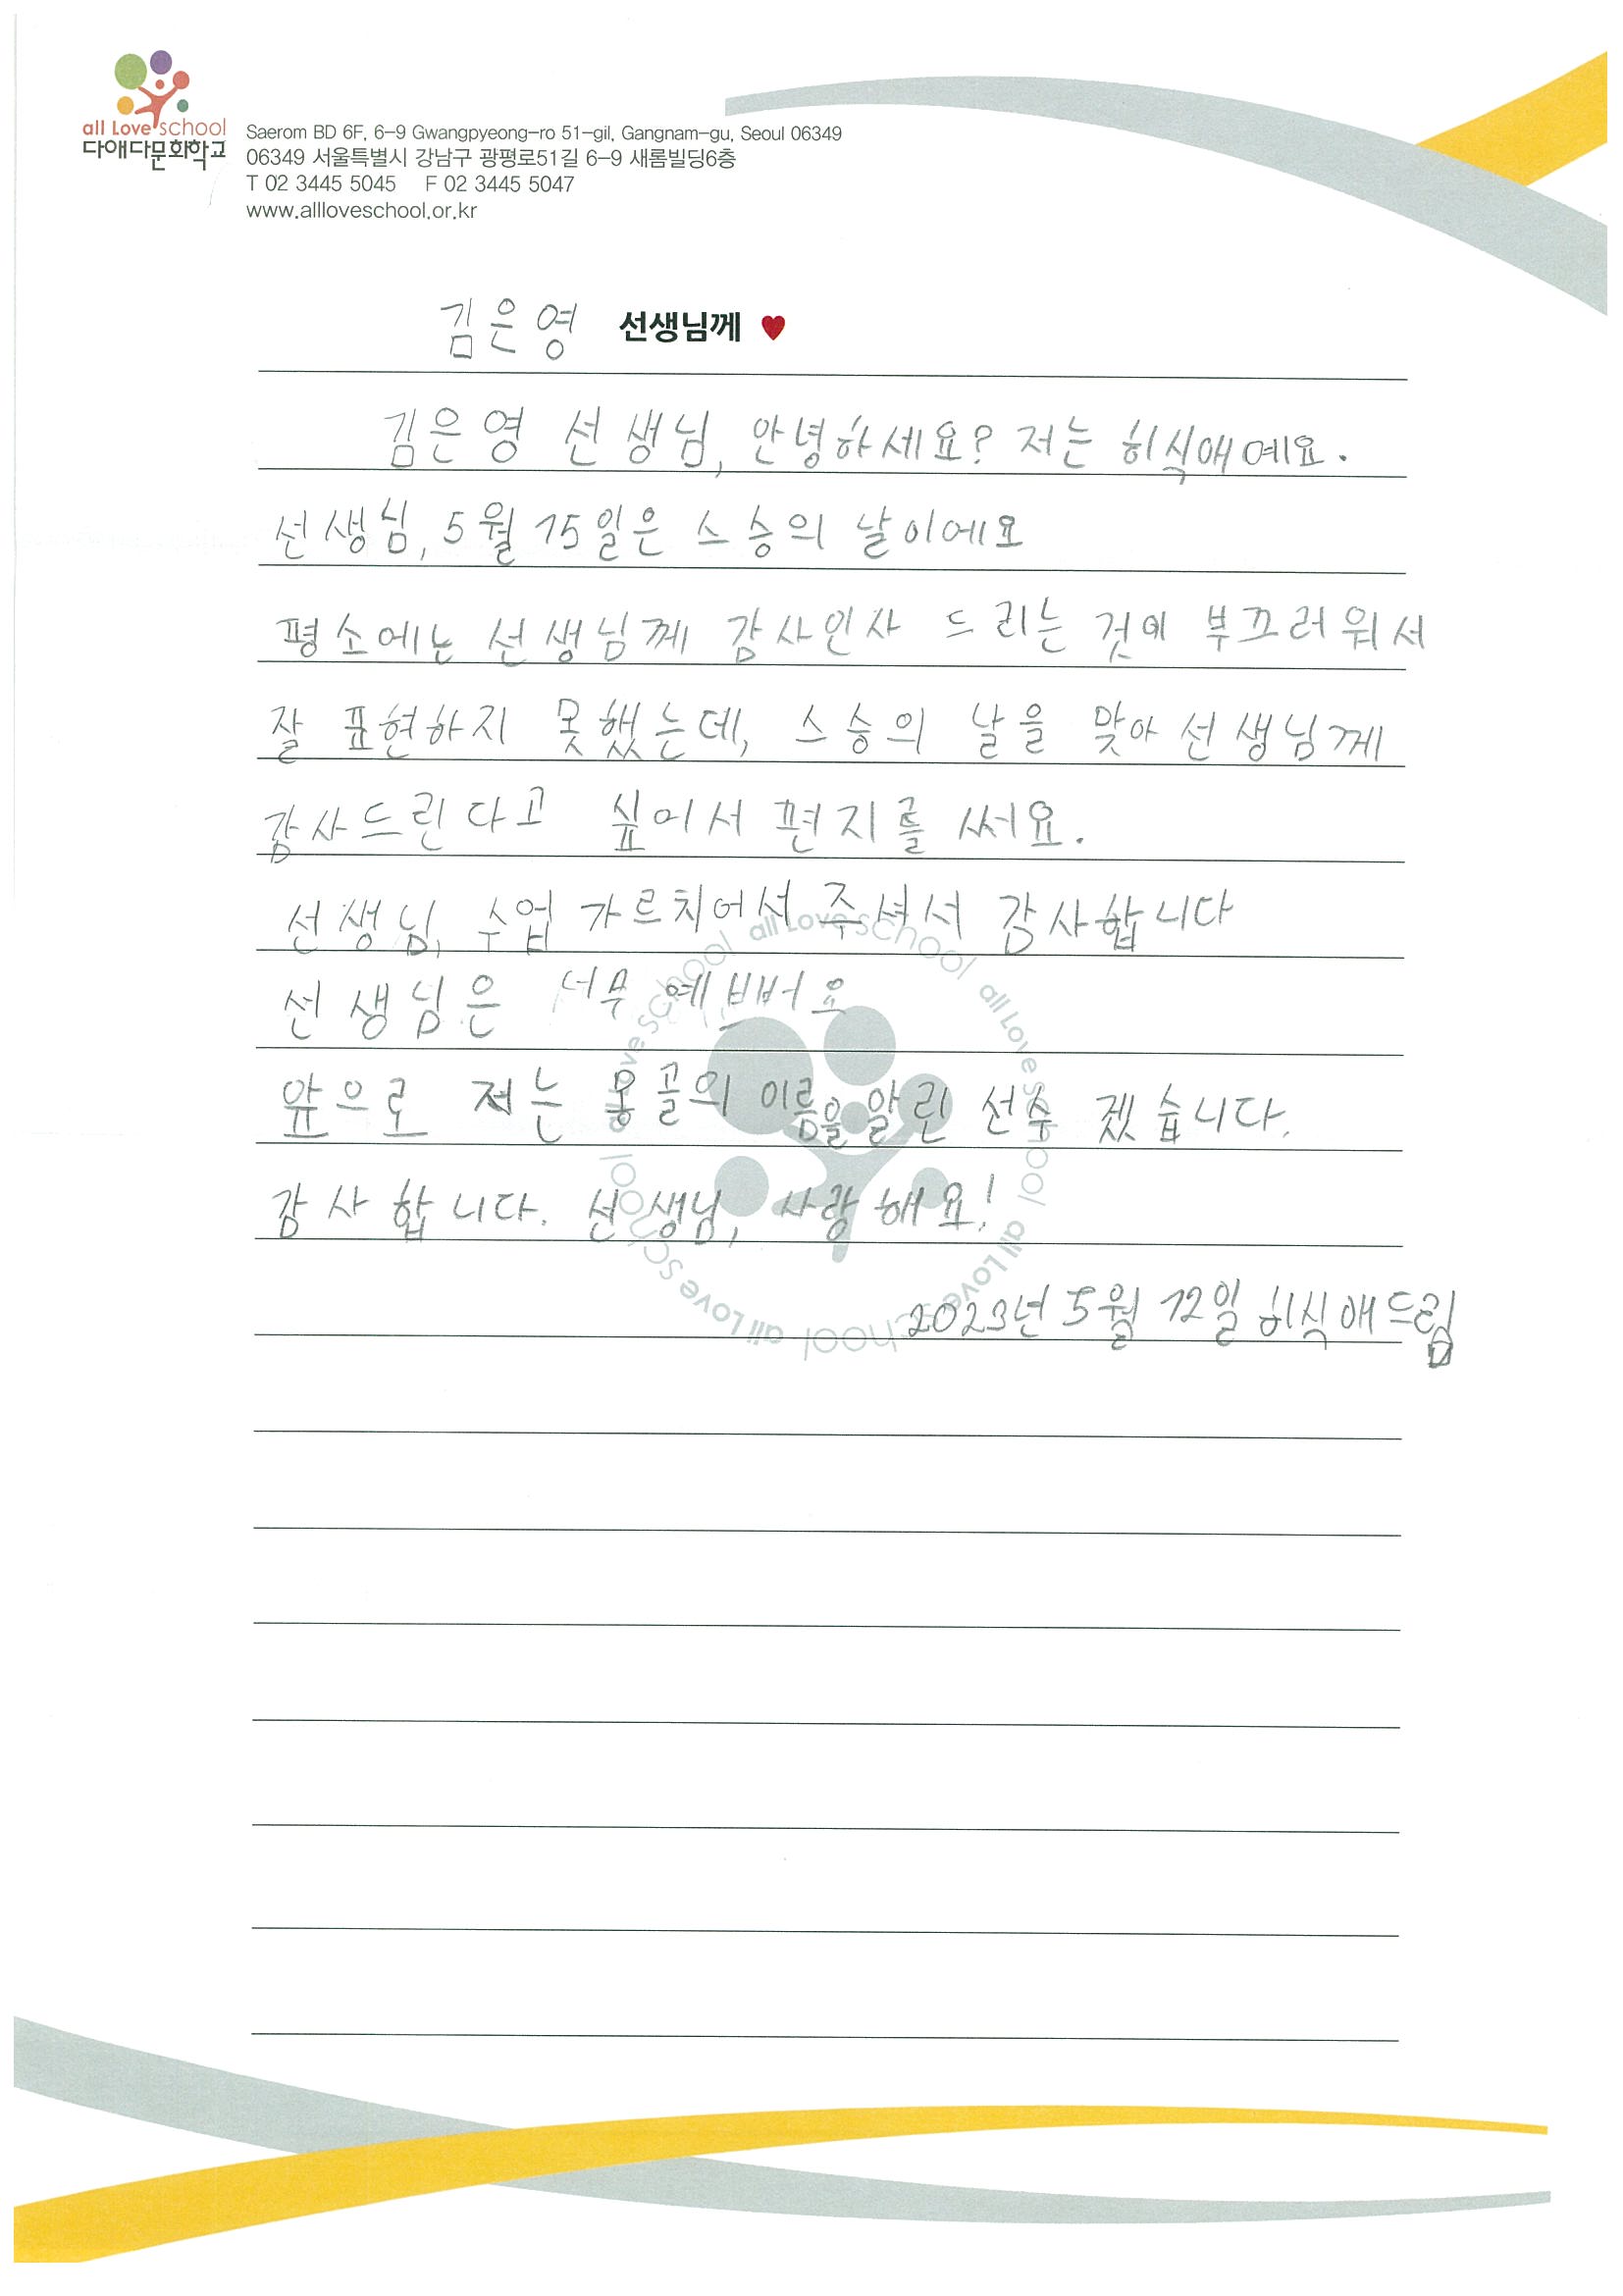 all Love school
다애다문화학교
Saerom BD 6F, 6-9 Gwangpyeong-ro 51-gil, Gangnam-gu, Seoul 06349
06349 서울특별시 강남구 광평로51길 6-9 새롬빌딩6층
T 02 3445 5045 F 02 3445 5047
www.allloveschool.or.kr
김은영 선생님께 ♥
김은영 선생님, 안녕하세요? 저는 히식애예요.
선생님, 5월 15일은 스승의 날이에요
평소에는 선생님께 감사인사 드리는 것이 부끄러워서
잘 표현하지 못했는데, 스승의 날을 맞아 선생님께
감사드린다고 싶어서 편지를 써요.
선생님, 수업 가르치어서 주셔서 감사합니다
선생님은 너무 예쁘버요
앞으로 저는 몽골의 이름을 알린 선수 겠습니다.
감사합니다. 선생님, 사랑해요!
2023년 5월 12일 히식애드림
all Love school all Love school all Love school all Love school all Love school